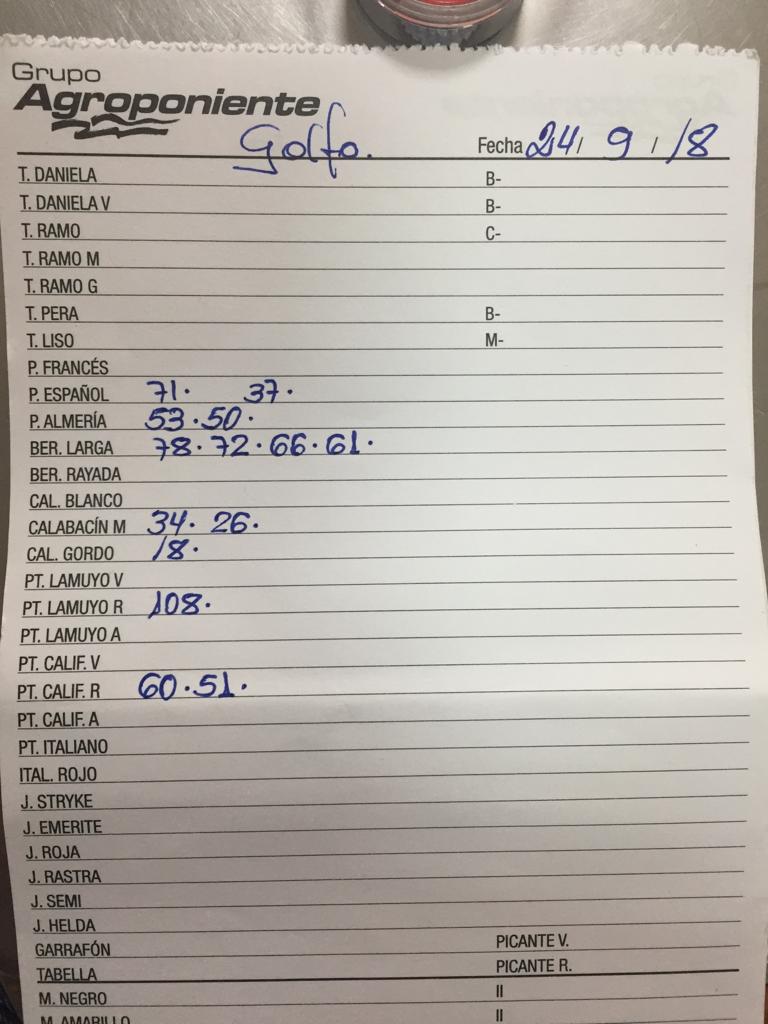 Grupo
Agroponiente
Golfo. Fecha 24/ 9 / 18
T. DANIELA B-
T. DANIELA V B-
T. RAMO C-
T. RAMO M
T. RAMO G
T. PERA B-
T. LISO M-
P. FRANCÉS
P. ESPAÑOL 71. 37.
P. ALMERÍA 53.50.
BER. LARGA 78.72.66.61.
BER. RAYADA
CAL. BLANCO
CALABACÍN M 34. 26.
CAL. GORDO 18.
PT. LAMUYO V
PT. LAMUYO R 108.
PT. LAMUYO A
PT. CALIF. V
PT. CALIF. R 60.51.
PT. CALIF. A
PT. ITALIANO
ITAL. ROJO
J. STRYKE
J. EMERITE
J. ROJA
J. RASTRA
J. SEMI
J. HELDA
GARRAFÓN PICANTE V.
TABELLA PICANTE R.
M. NEGRO II
M. AMARILLO II